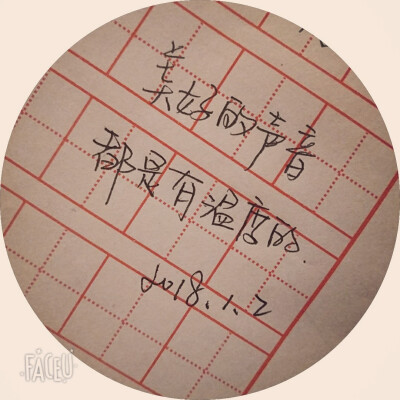 美好的声音
都是有温度的.
2018.1.2
FACEU